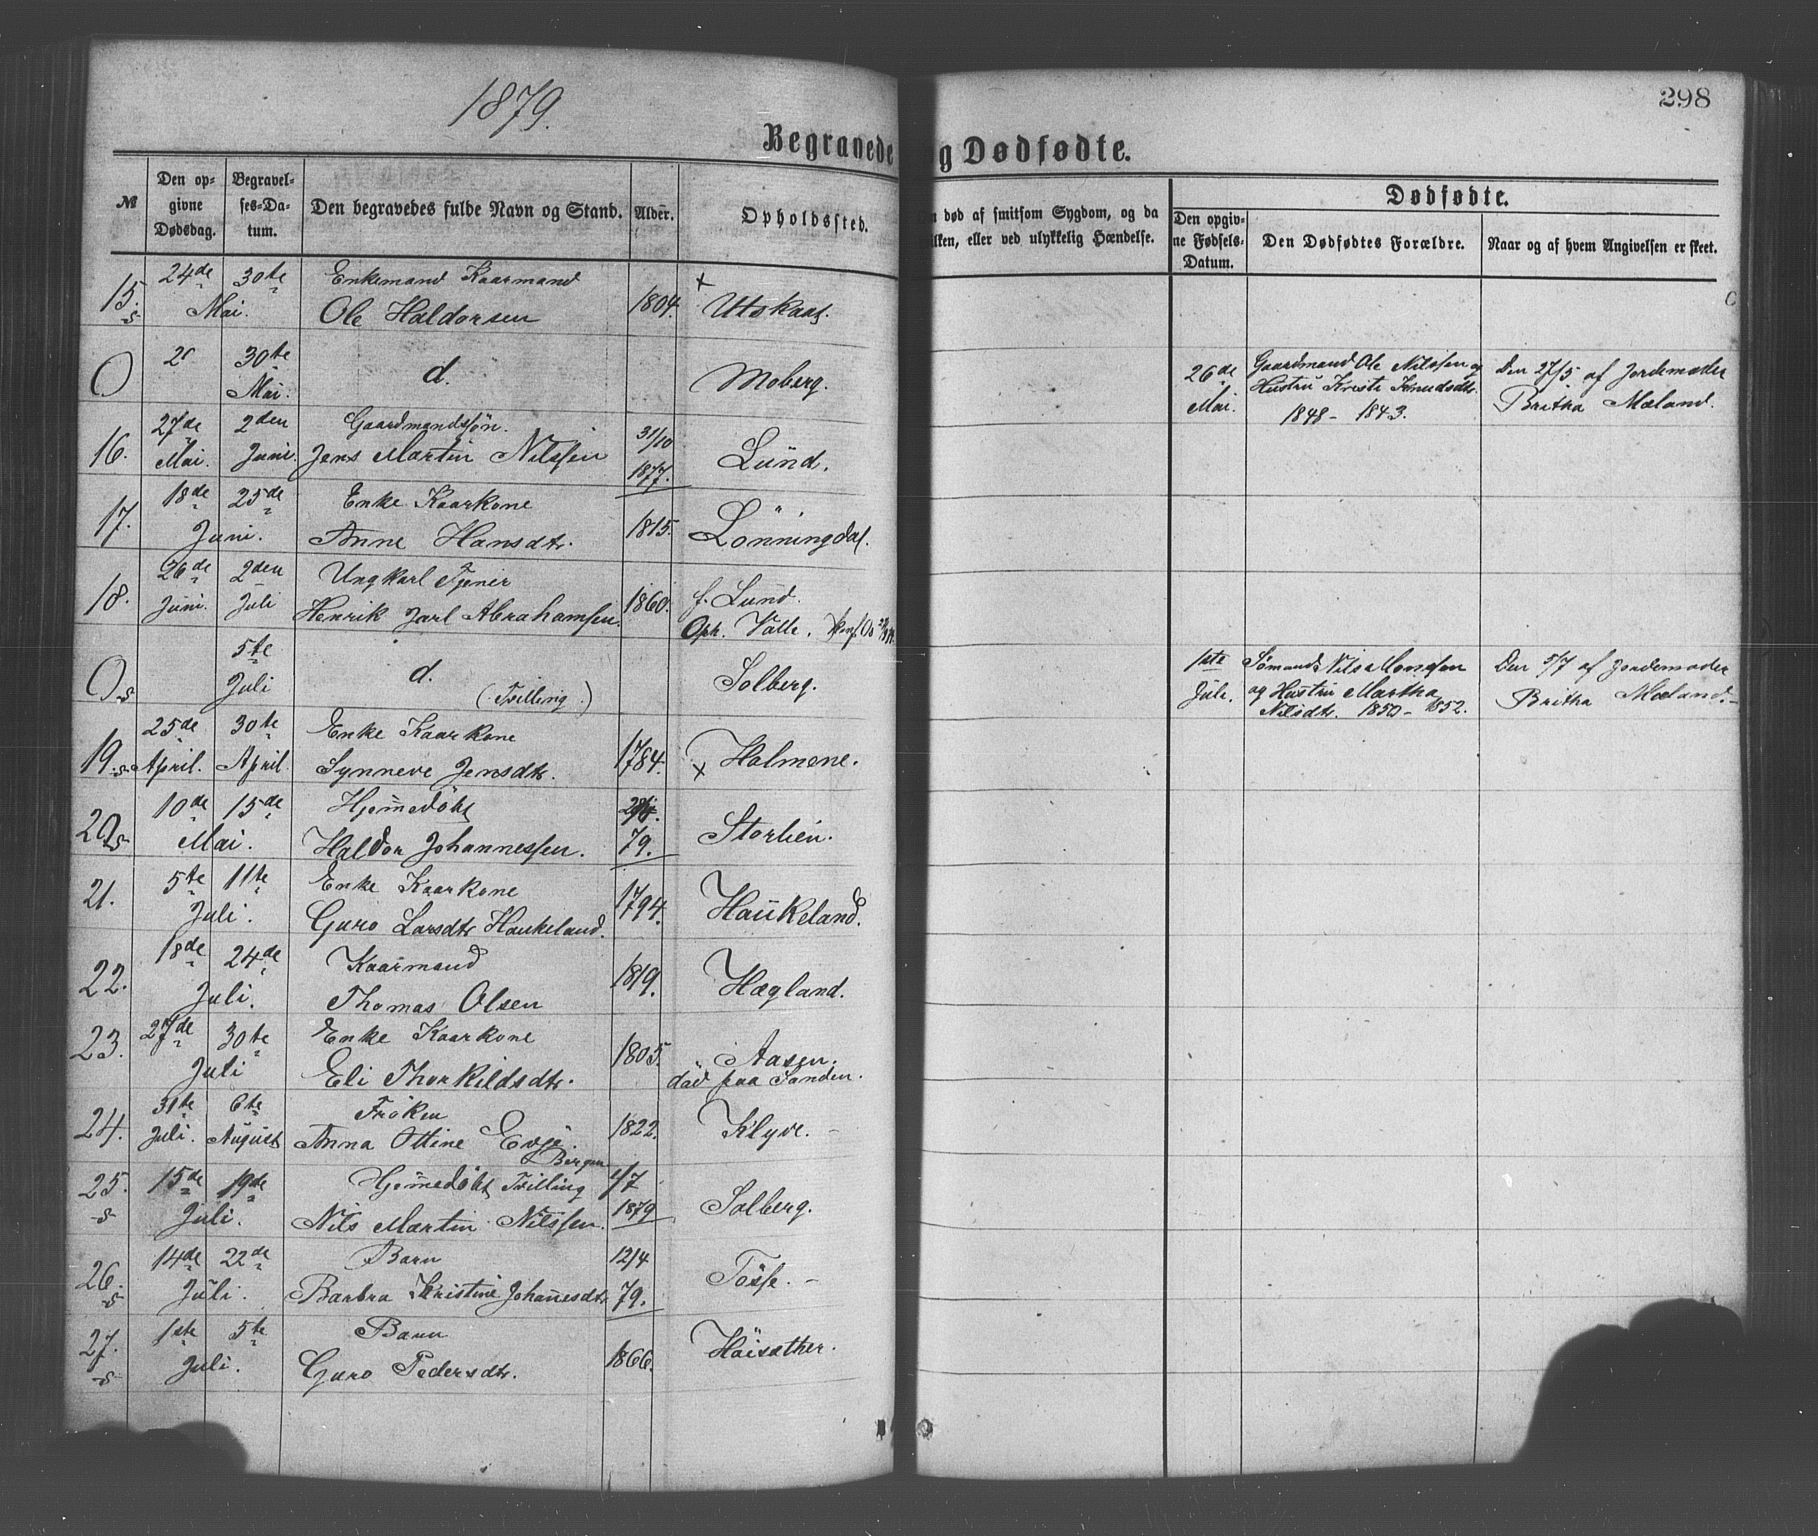 1879.
298
Begravede og Dødfødte.
№
Den op-
givne
Dødsdag.
Begravel-
ses-Da-
tum.
Den begravedes fulde Navn og Stand.
Alder.
Opholdssted.
død af smitsom Sygdom, og da
ilken, eller ved ulykkelig Hændelse.
Dødfødte.
Den opgiv-
ne Fødsels-
Datum.
Den Dødfødtes Forældre.
Naar og af hvem Angivelsen er skeet.
15. s 24de 30te Mai. Enkemand Kaarmand
Ole Haldorsen 1804. + Utskaas.
0 30te Mai. d. Moberg.
26de Mai. Gaardmand Ole Nilssen og
Hustru Kristi Knudsdtr.
1848 - 1843.
Den 27/5 af Jordemoder
Britha Mæland.
16. 27de Mai. 2den Juni. Gaardmandssøn.
Jens Martin Nilssen 31/10 1877. Lund.
17. 18de 25de Juni. Enke Kaarkone
Anne Hansdtr. 1815. Lønningdal.
18. 26de Juni. 2den Juli Ungkarl Tjener
Henrik Jarl Abrahamsen. 1860. f. Lund.
Oph. Valle.
0 s 5te Juli d.
(Tvilling.) Solberg.
1ste Juli. Sømand Nils Monsen
og Hustru Martha
Nilsdtr. 1850 - 1852.
Den 5/7 af Jordemoder
Britha Mæland.
19. s 25de April. 30te April. Enke Kaarkone
Synneve Jensdtr. 1784. x Holmene.
20. s 10de 15de Mai. Hjemmedøbt
Haldor Johannessen. 79. Storlien.
21. 5te 11te Juli. Enke Kaarkone
Guro Larsdtr Haukeland. 1794. Haukeland.
22. 18de 24de Juli. Kaarmand
Thomas Olsen 1819. Hægland.
23. 27de 30te Juli Enke Kaarkone
Eli Thorkildsdtr. 1805. Aasen.
død paa Sanden.
24. 31te Juli. 6te August Frøken
Anna Ottine Evje.
Bergen 1822. Klyve. -
25. s 15de 19de Juli. Hjemmedøbt Tvilling
Nils Martin Nilssen. 1/7 1879 Solberg.
26. s 14de 22de Juli. Barn
Barbra Kristine Johanesdtr 12/4 79. Tøsse. -
27. s 1ste 5te Juli. Barn
Guro Pedersdtr. 1866. Høisæther.